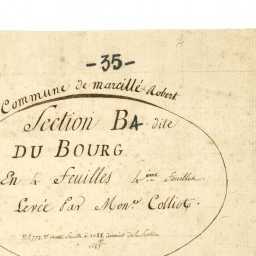 -35-
Commune de marcillé-Robert
Section BA dite
DU BOURG
En 4 Feuilles 4eme Feuille
Levée Par Monr Colliot